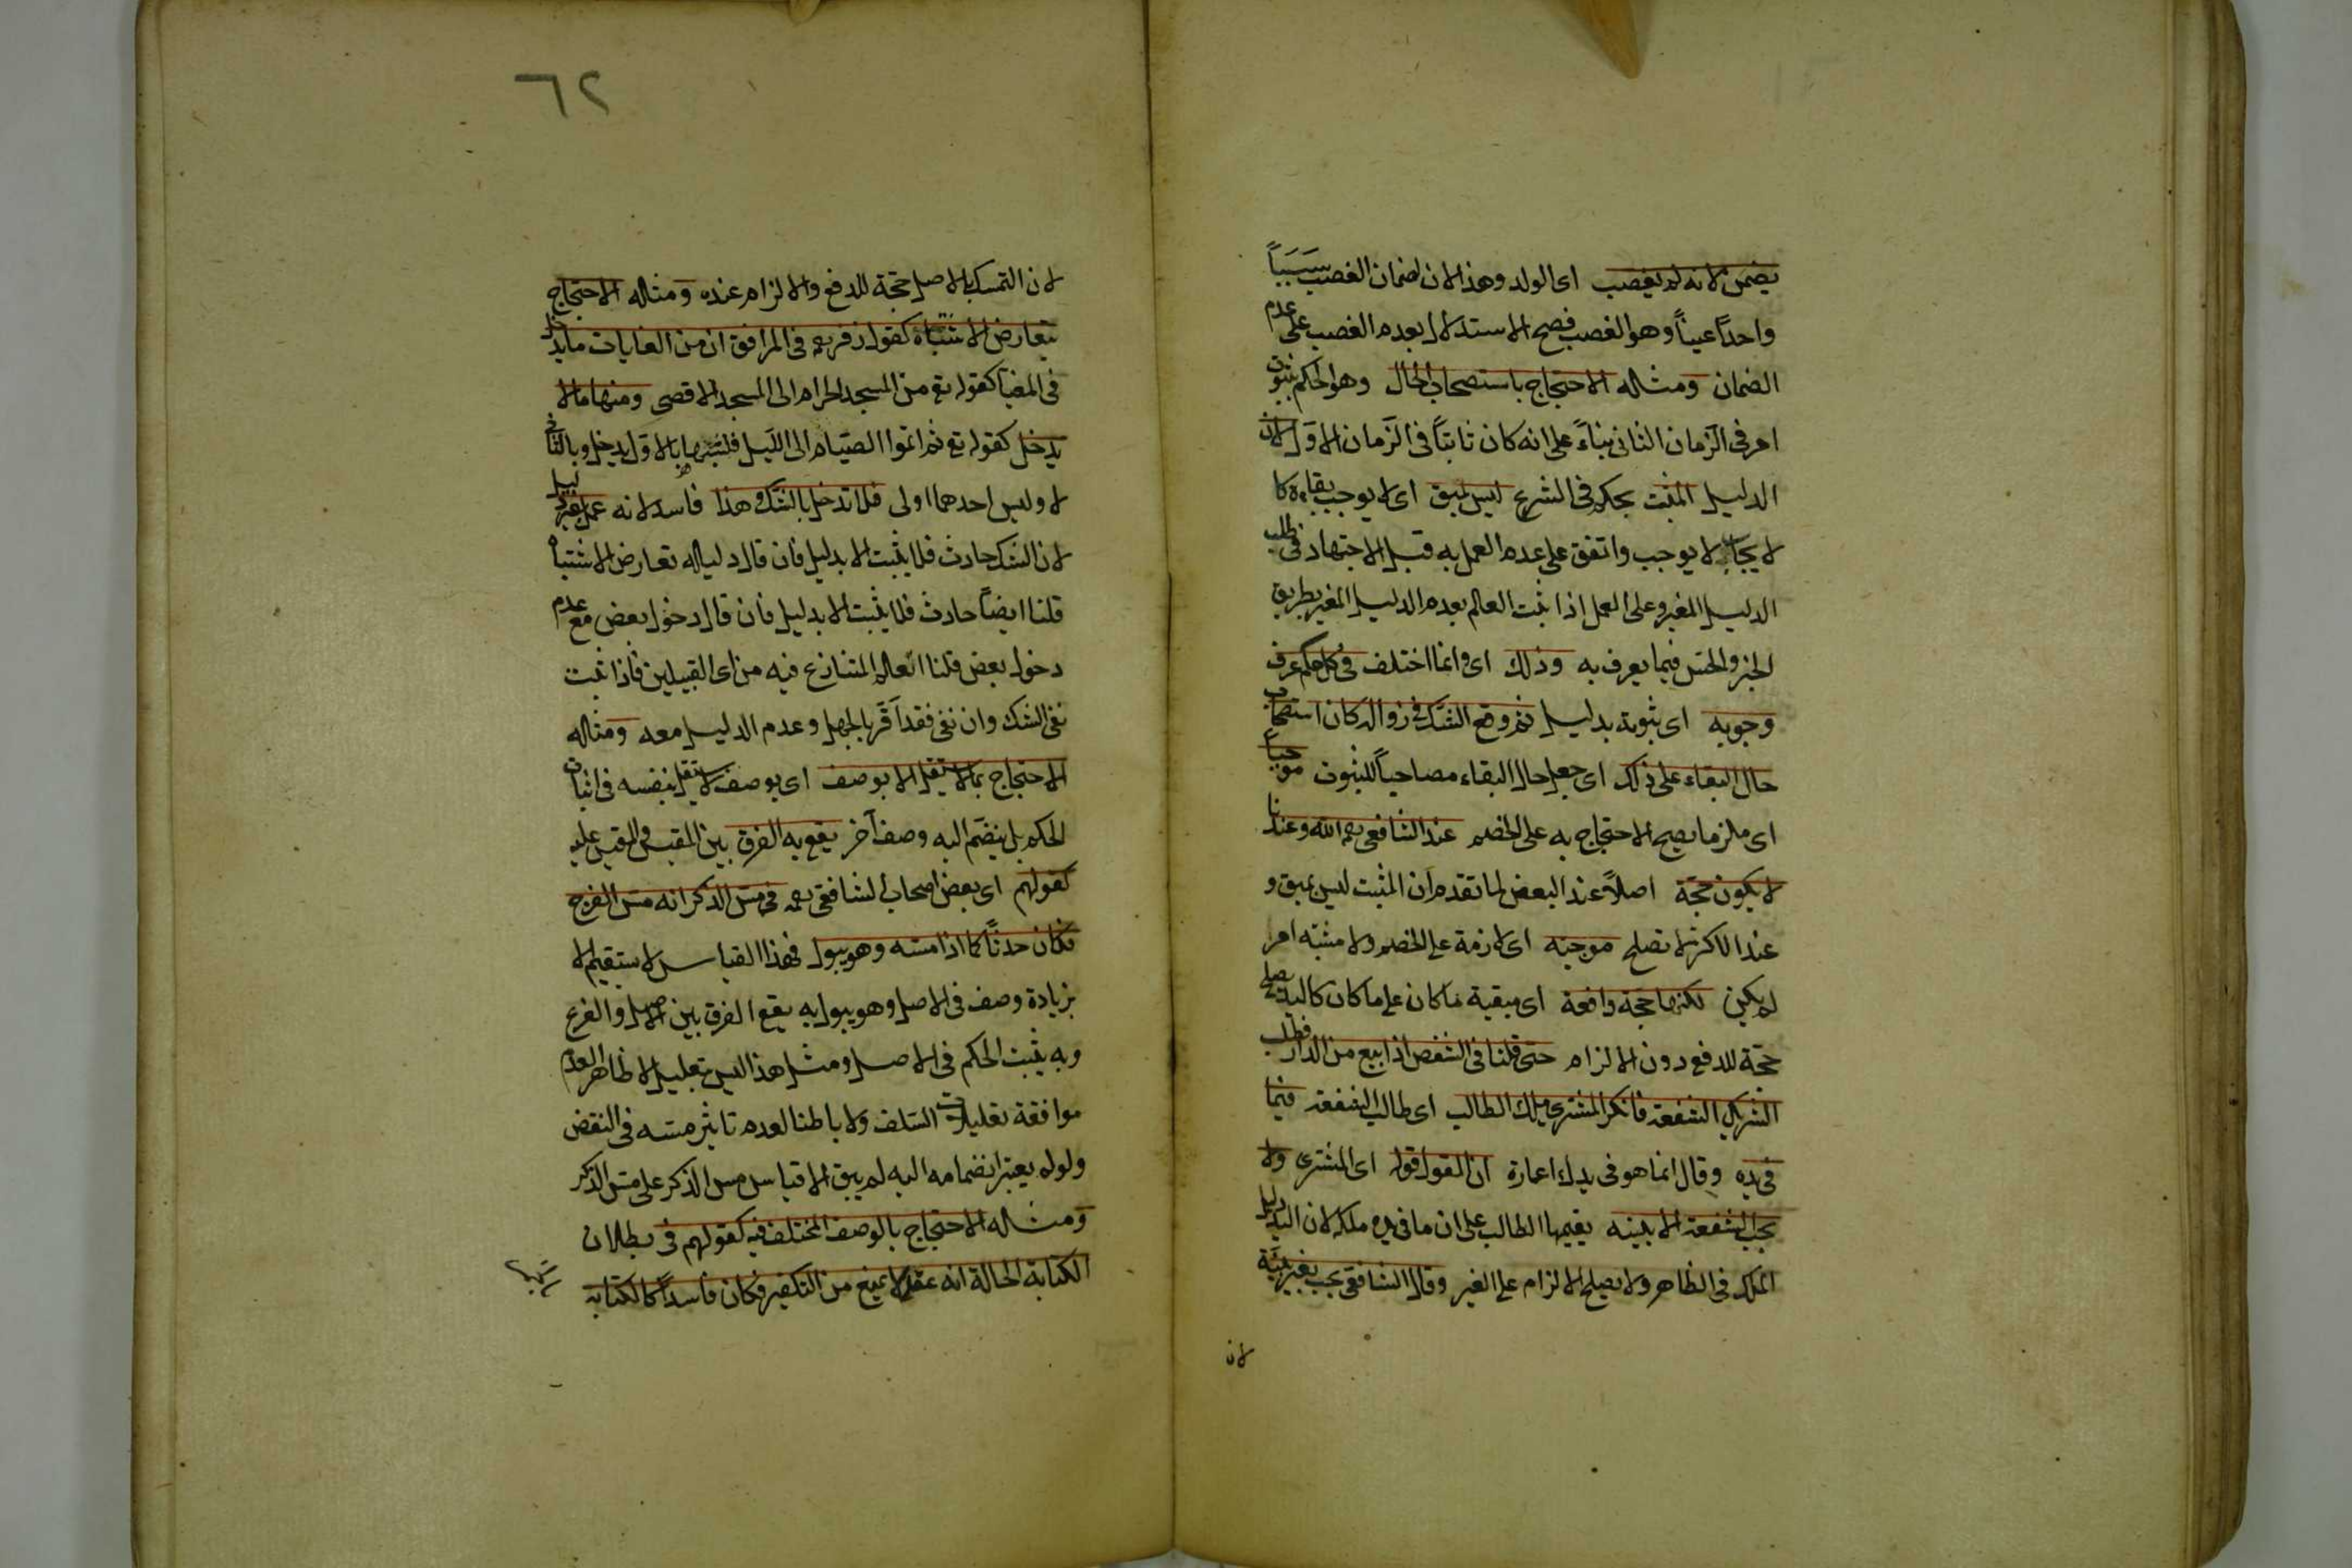 يضمن لانه لم يغصب اى الولد وهذا لان لضمان الغصب سَبَباً
واحداً عيناً وهو الغصب فصح الاستدلال بعدم الغصب على عدم
الضمان ومثاله الاحتجاج باستصحاب الحال وهو الحكم بثبوت
امر فى الزمان الثانى بناءً على انه كان ثابتاً فى الزمان الاول لان
الدليل المثبت بحكم فى الشرع ليس بمبق اى لا يوجب بقاءه كا
لايجاب لا يوجب واتفق على عدم العمل به قبل الاجتهاد فى طلب
الدليل المغير وعلى العمل اذا ثبت العالم بعدم الدليل المغير بطريق
الخبر والحس فيما يعرف به وذلك اى وانما اختلف فى كل حكم عرف
وجوبه اى ثبوته بدليل ثم وقع الشك فى زواله كان استصحاب
حال البقاء على ذلك اى جعل حال البقاء مصاحباً للثبوت موجباً
اى ملزما يصح الاحتجاج به على الخصم عند الشافعى رحمه الله وعندنا
لا يكون حجّة اصلاً عند البعض لما تقدم ان المثبت ليس بمبق و
عند الاكثر لا تصلح موجبه اى لازمة على الخصم ولا مثبته امر
لم يكن لكنها حجة دافعة اى مبقية ما كان على ما كان كاليد يصلح
حجّة للدفع دون الالزام حتى قلنا فى الشقص اذا بيع من الدار فطلب
الشريك الشفعة فانكر المشترى ملك الطالب اى طالب الشفعة فيما
فى يده وقال انما هو فى يدك اعارة ان القول قوله اى المشترى ولا
تجب الشفعة الا ببينه يقيمها الطالب على ان ما فى يده ملكه لان اليد دليل
الملك فى الظاهر ولا يصلح الالزام على الغير وقال الشافعى يجب بغير بيّنة
لان
٦٢
لان التمسك بالاصل حجّة للدفع والالزام عنده ومثاله الاحتجاج
بتعارض الاشتباه كقول زفر رحمه فى المرافق ان من الغايات ما يدخل
فى المغيا كقوله تع من المسجد الحرام الى المسجد الاقصى ومنها ما لا
يدخل كقوله تع ثم اتموا الصيام الى الليل فلشبهها بالاول يدخل وبالثانى
لا وليس احدهما اولى فلا تدخل بالشك وهذا فاسد لانه عمل بغير دليل
لان الشك حادث فلا يثبت الا بدليل فان قال دليله تعارض الاشتباه
قلنا ايضاً حادث فلا يثبت الا بدليل فان قال دخول بعض مع عدم
دخول بعض قلنا اتعلم المتنازع فيه من اى القبيلين فاذا ثبت
نفى الشك وان نفى فقد اقرّ بالجهل وعدم الدليل معه ومثاله
الاحتجاج بما لا يستقل الا بوصف اى بوصف لا يستقل بنفسه فى اثبات
الحكم بل ينضم اليه وصف آخر يقع به الفرق بين المقيس والمقيس عليه
كقولهم اى بعض اصحاب الشافعى رحمه فى مس الذكر انه مس الفرج
فكان حدثاً كما اذا مسه وهو يبول فهذا القياس لا يستقيم الا
بزيادة وصف فى الاصل وهو يبول به يقع الفرق بين الاصل والفرع
وبه يثبت الحكم فى الاصل ومثل هذا ليس تعليل لا ظاهر العدم
موافقة تعليلات السلف ولا باطنا لعدم تاثير مسه فى النقض
ولو لم يعتبر انضمامه اليه لم يبق الا قياس مس الذكر على مس الذكر
ومثاله الاحتجاج بالوصف المختلف فيه كقولهم فى بطلان
الكتابة الحالة انه عقد لا يمنع من التكفير فكان فاسداً كالكتابة